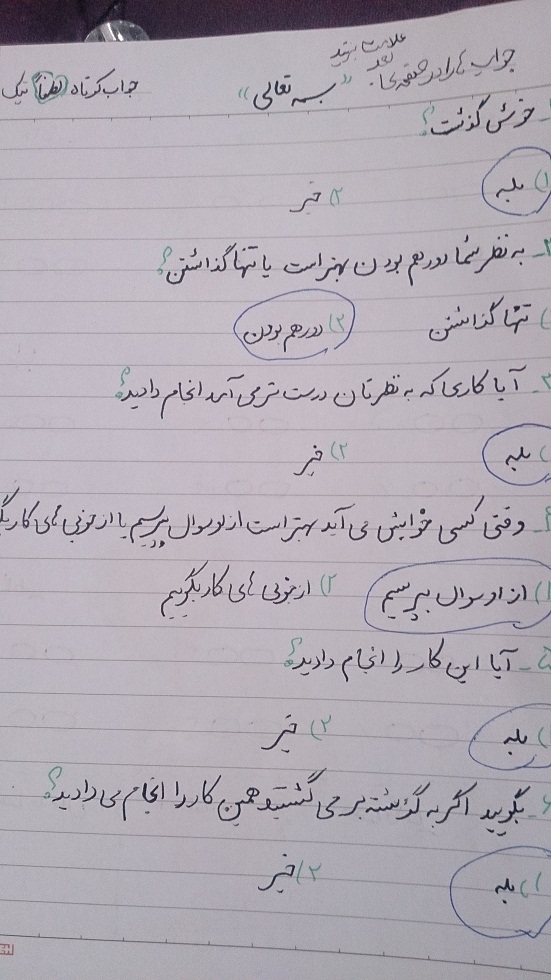 جواب ها را در صفحه ی بعد علامت بزنید
"بسمه تعالی"
جواب کوتاه لطفا تیک
خوش گذشت؟
۱) بله ۲) خیر
۲- به نظر شما دور هم بودن بهتر است یا تنها گذاشتن؟
) تنها گذاشتن ۲) دور هم بودن
۳- آیا کاری که به نظرتان درست تر می آمد انجام دادید؟
) بله ۲) خیر
۴- وقتی کسی خوابش می آید بهتر است از او سوال بپرسیم یا از خوبی های کار بگ
۱) از او سوال بپرسیم ۲) از خوبی های کار بگوییم
۵- آیا این کار را انجام دادید؟
) بله ۲) خیر
۶- بگویید اگر به گذشته بر می گشتید همین کار را انجام می دادید؟
۱) بله ۲) خیر